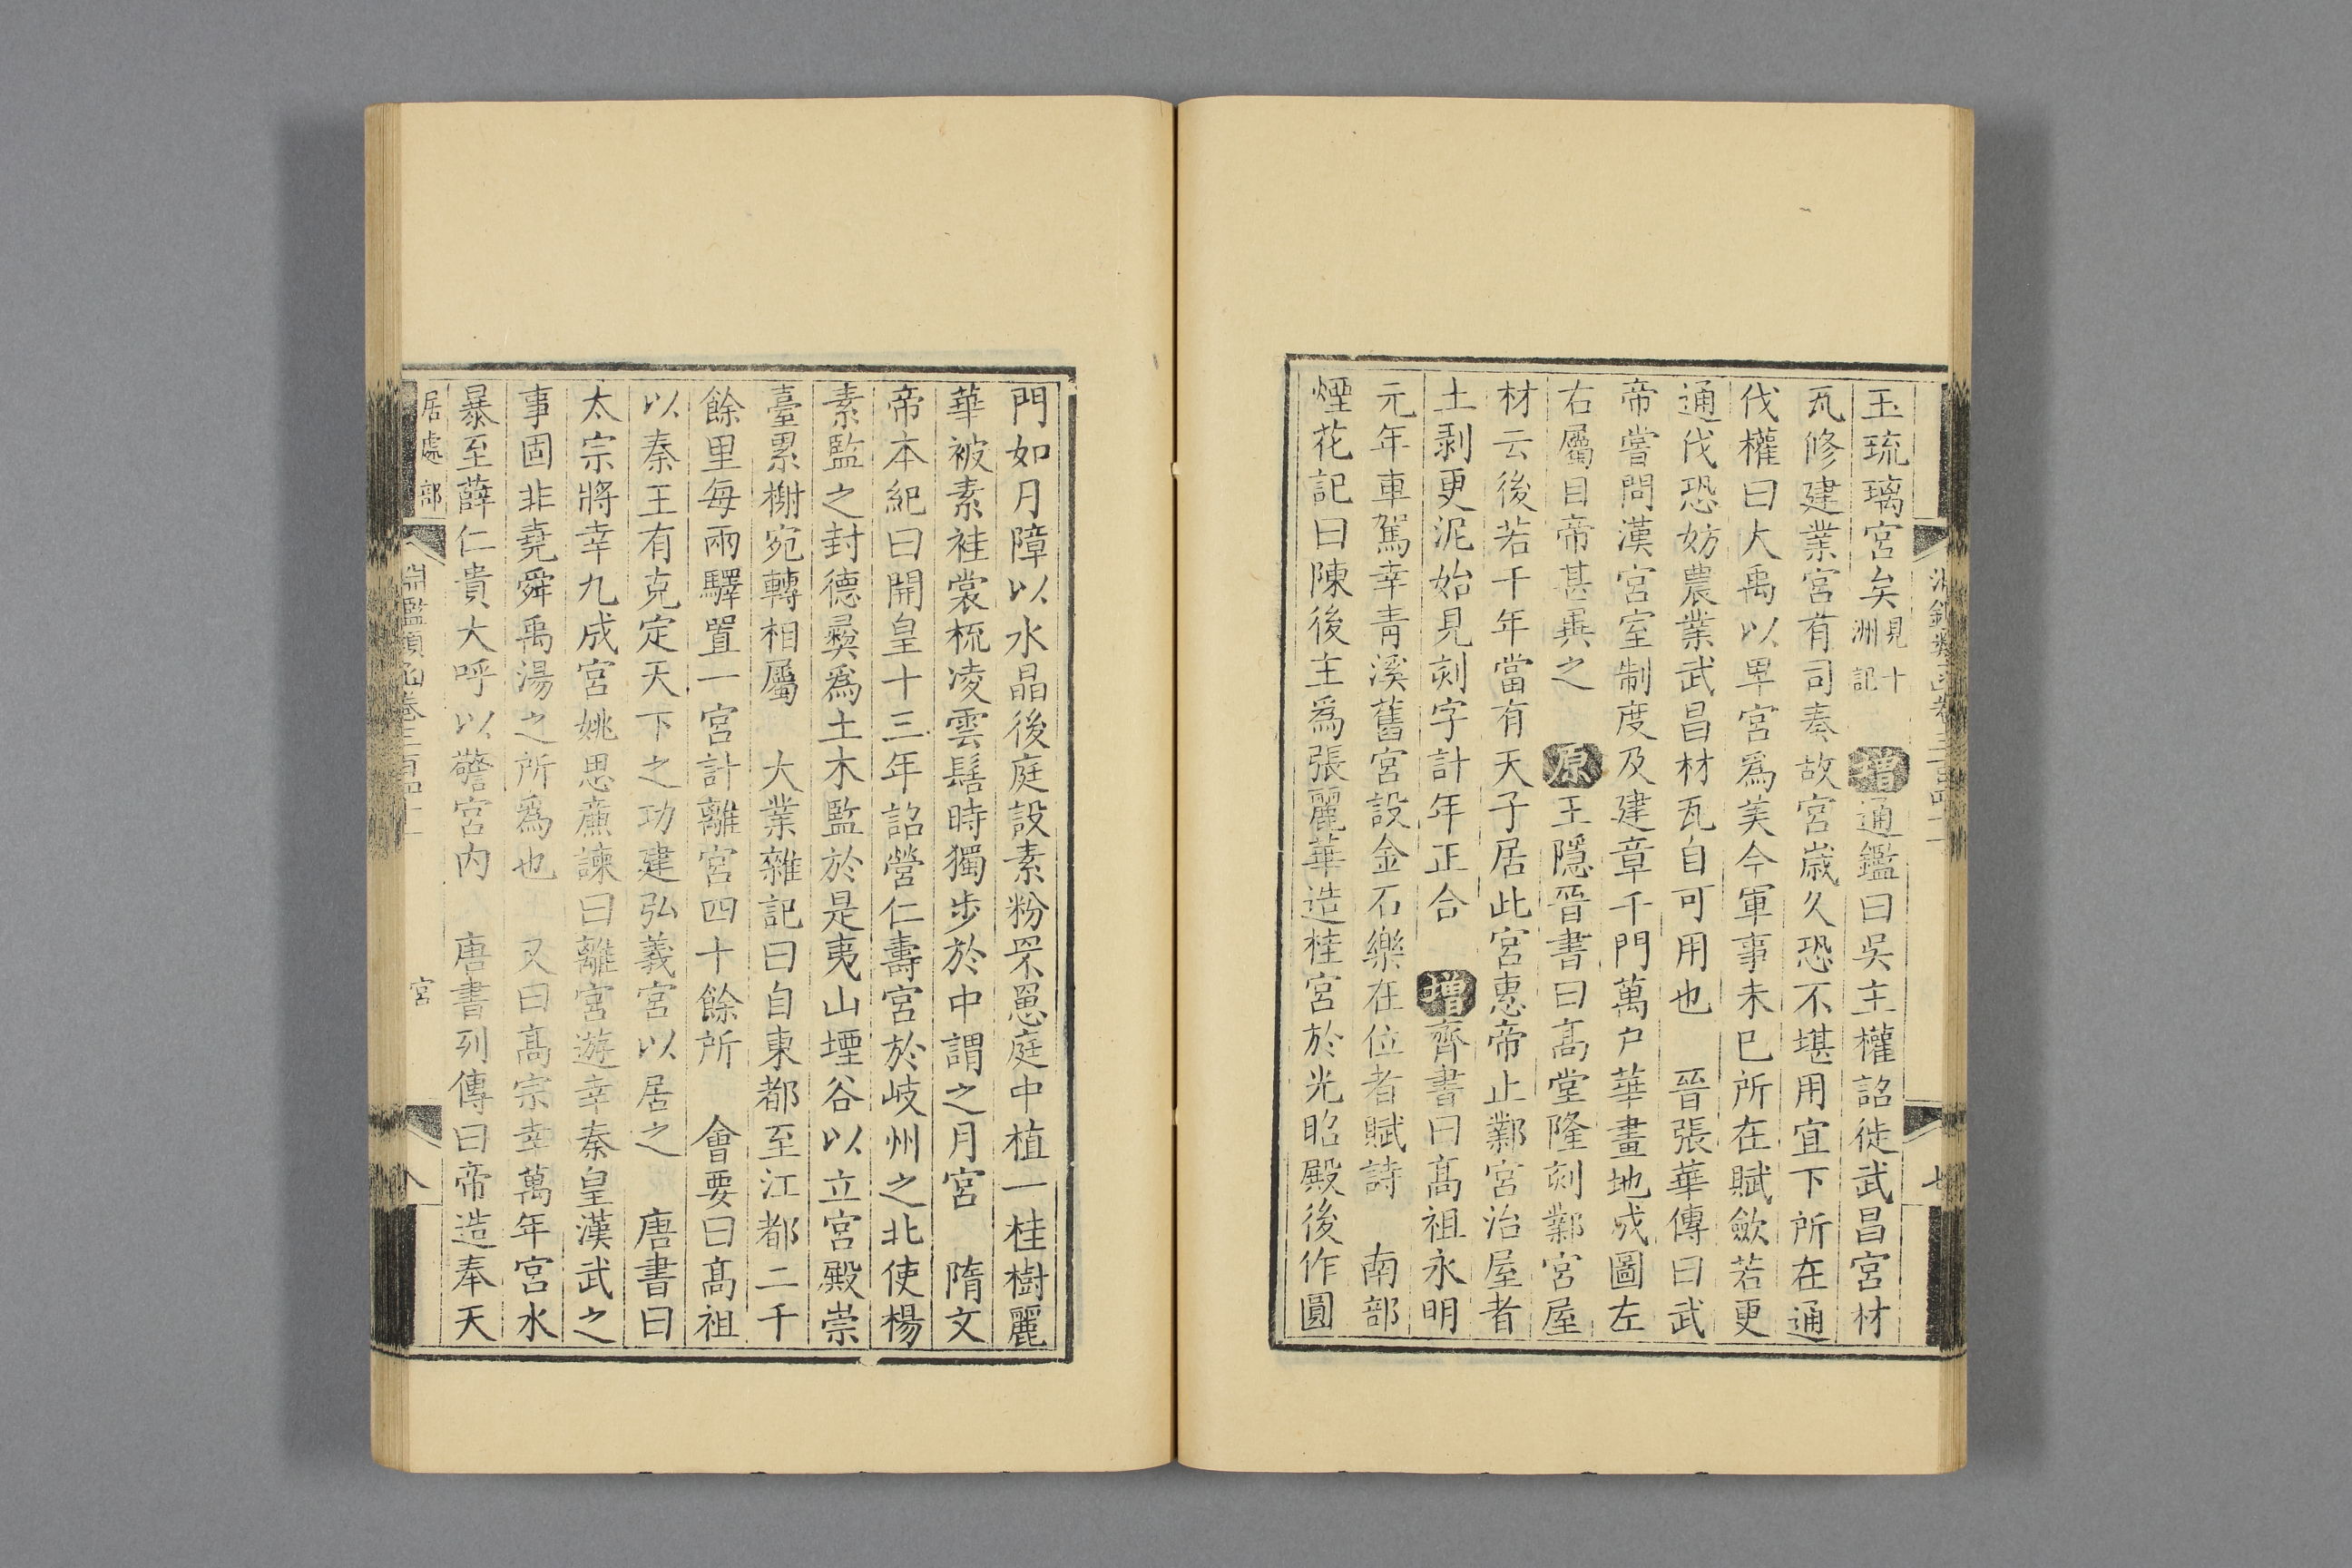 玉琉璃宮矣見十洲記 增通鑑曰吳主權詔徙武昌宮材
瓦修建業宮有司奏故宮歲久恐不堪用宜下所在通
伐權曰大禹以卑宮爲美今軍事未已所在賦斂若更
通伐恐妨農業武昌材瓦自可用也 晉張華傳曰武
帝嘗問漢宮室制度及建章千門萬戶華畫地成圖左
右屬目帝甚異之 原王隱晉書曰高堂隆刻鄴宮屋
材云後若干年當有天子居此宮惠帝止鄴宮治屋者
土剥更泥始見刻字計年正合 增齊書曰髙祖永明
元年車駕幸青溪舊宮設金石樂在位者賦詩 南部
煙花記曰陳後主爲張麗華造桂宮於光昭殿後作圓
七
門如月障以水晶後庭設素粉罘罳庭中植一桂樹麗
華被素袿裳梳凌雲髻時獨步於中謂之月宮 隋文
帝本紀曰開皇十三年詔營仁壽宮於岐州之北使楊
素監之封德彝爲土木監於是夷山堙谷以立宮殿崇
臺累榭宛轉相屬 大業雜記曰自東都至江都二千
餘里每兩驛置一宮計離宮四十餘所 會要曰髙祖
以秦王有克定天下之功建弘義宮以居之 唐書曰
太宗將幸九成宮姚思廉諫曰離宮遊幸秦皇漢武之
事固非堯舜禹湯之所爲也 又曰髙宗幸萬年宮水
暴至薛仁貴大呼以警宮內 唐書列傳曰帝造奉天
居處部 淵鑑類函卷三百四十一 宮 八